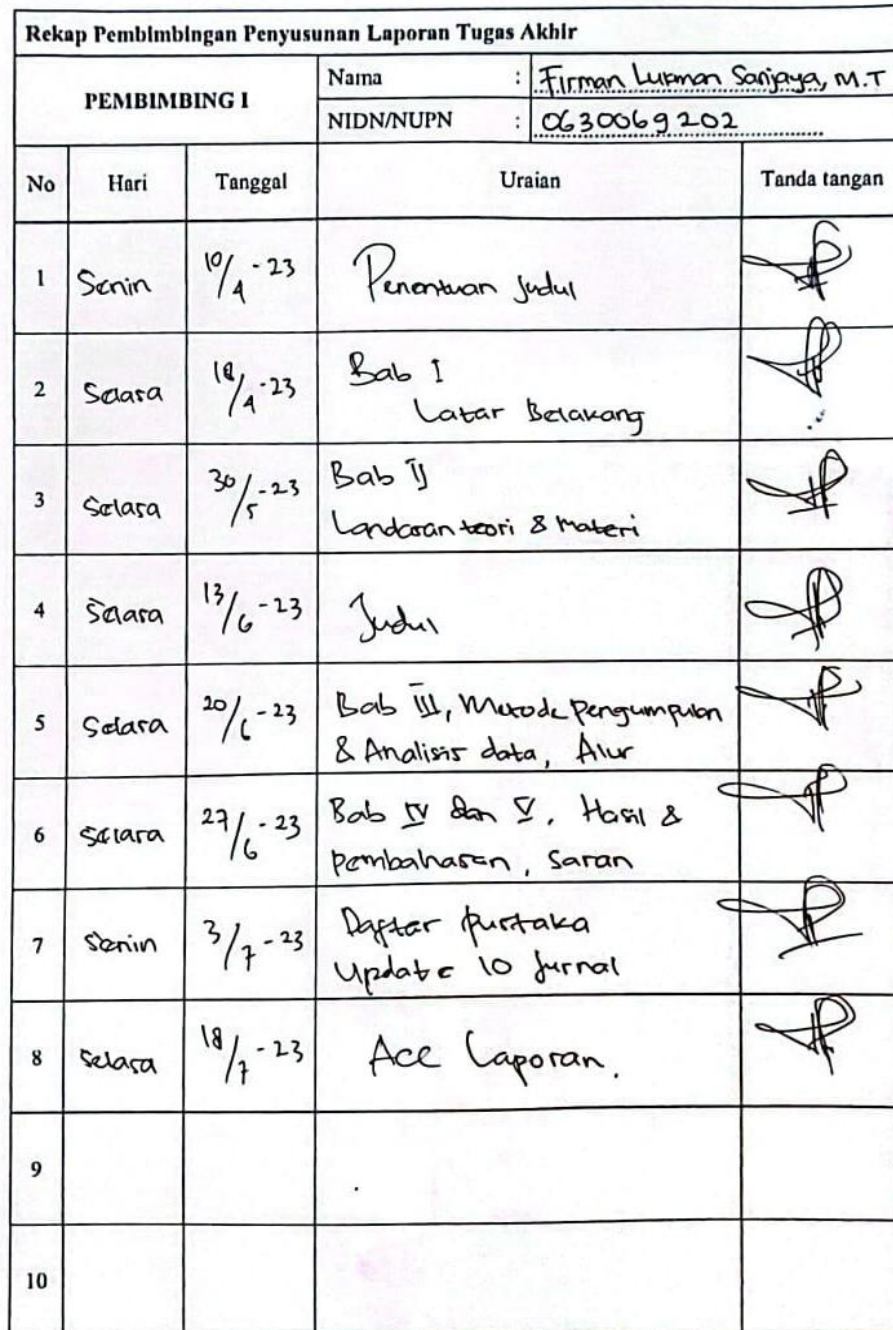 Rekap Pembimbingan Penyusunan Laporan Tugas Akhir
PEMBIMBING I
Nama : Firman Lukman Sanjaya, M.T
NIDN/NUPN : 0630069202
No Hari Tanggal Uraian Tanda tangan
1 Senin 10/4-23 Penentuan Judul
2 Selasa 18/4-23 Bab I
Latar Belakang
3 Selasa 30/5-23 Bab II
Landasan teori & Materi
4 Selasa 13/6-23 Judul
5 Selasa 20/6-23 Bab III, Metode pengumpulan
& Analisis data, Alur
6 Selasa 27/6-23 Bab IV dan V. Hasil &
pembahasan, saran
7 Senin 3/7-23 Daftar pustaka
Update 10 Jurnal
8 Selasa 18/7-23 Acc Laporan.
9
10